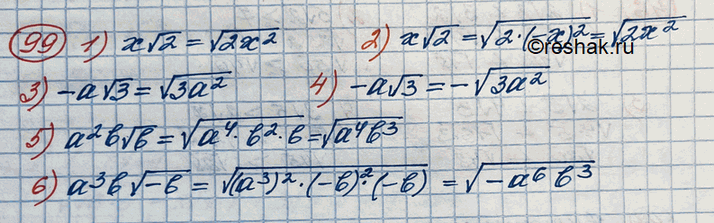 99 1) x√2 = √(2x²) 2) x√2 = √(2·(-x)²) = √(2x²)
©reshak.ru
3) -a√3 = √(3a²) 4) -a√3 = -√(3a²)
5) a²b√b = √(a⁴·b²·b) = √(a⁴b³)
6) a³b√(-b) = √((a³)²·(-b)²·(-b)) = √(-a⁶b³)